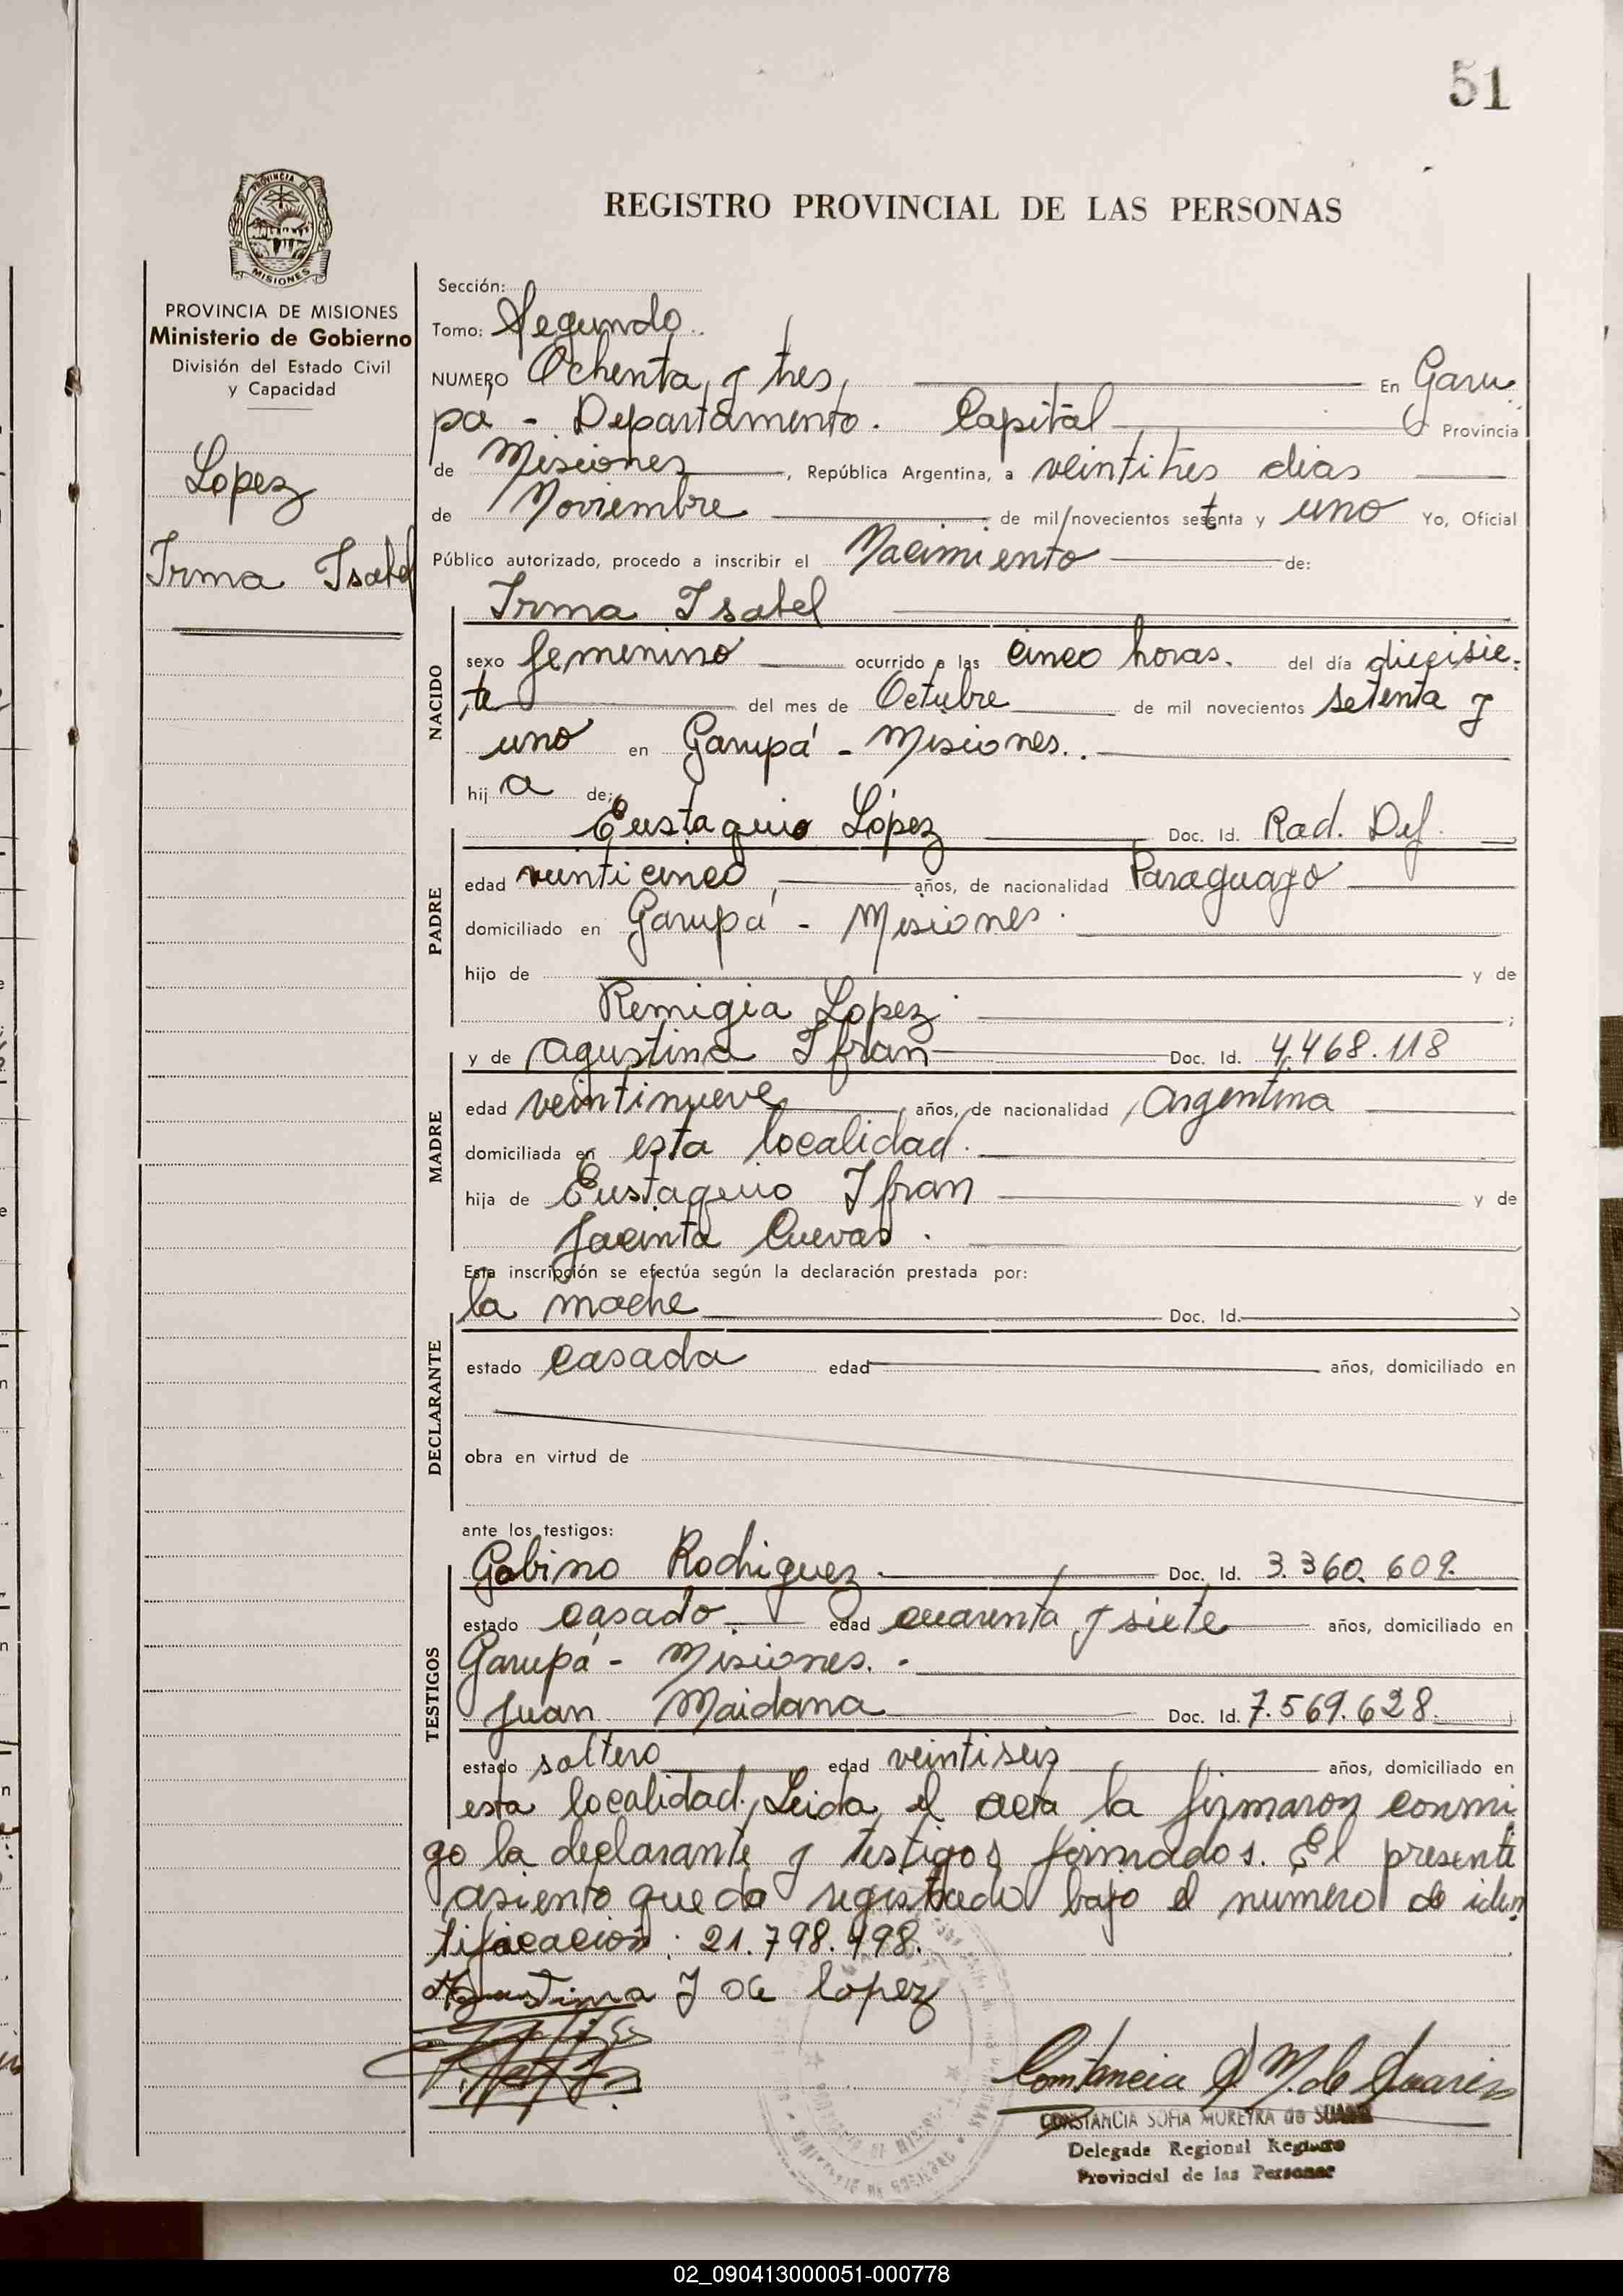 51
PROVINCIA DE
MISIONES
REGISTRO PROVINCIAL DE LAS PERSONAS
PROVINCIA DE MISIONES
Ministerio de Gobierno
División del Estado Civil
y Capacidad
Lopez
Irma Isabel
Sección:
Tomo: Segundo.
NUMERO Ochenta y tres, En Garu-
pa - Departamento. Capital Provincia
de Misiones, República Argentina, a veintitres dias
de Noviembre de mil novecientos setenta y uno Yo, Oficial
Público autorizado, procedo a inscribir el Nacimiento de:
NACIDO
Irma Isabel
sexo femenino ocurrido a las cinco horas. del día diecisie-
te del mes de Octubre de mil novecientos setenta y
uno en Garupá - Misiones.
hij a de:
PADRE
Eustaquio López Doc. Id. Rad. Def.
edad veinticinco, años, de nacionalidad Paraguayo
domiciliado en Garupá - Misiones.
hijo de y de
Remigia Lopez. ;
MADRE
y de Agustina Ifran Doc. Id. 4.468.118
edad veintinueve años, de nacionalidad Argentina
domiciliada en esta localidad.
hija de Eustaquio Ifran y de
Jacinta Cuevas.
Esta inscripción se efectúa según la declaración prestada por:
DECLARANTE
la madre Doc. Id.
estado casada edad años, domiciliado en
obra en virtud de
ante los testigos:
TESTIGOS
Gabino Rodriguez. Doc. Id. 3.360.609.
estado casado edad cuarenta y siete años, domiciliado en
Garupá - Misiones. -
Juan Maidana Doc. Id. 7.569.628.
estado soltero edad veintiseis años, domiciliado en
esta localidad, Leida el acta la firmaron conmi
go la declarante y testigos firmados. El presente
asiento queda registrado bajo el numero de iden
tificación: 21.798.498.
Agustina I de lopez
Constancia S M. de Suarez
CONSTANCIA SOFIA MOREYRA de SUAREZ
Delegada Regional Registro
Provincial de las Personas
02_090413000051-000778